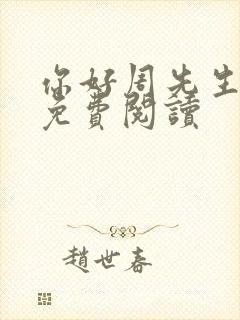 你好周先生
免費閱讀
趙世春